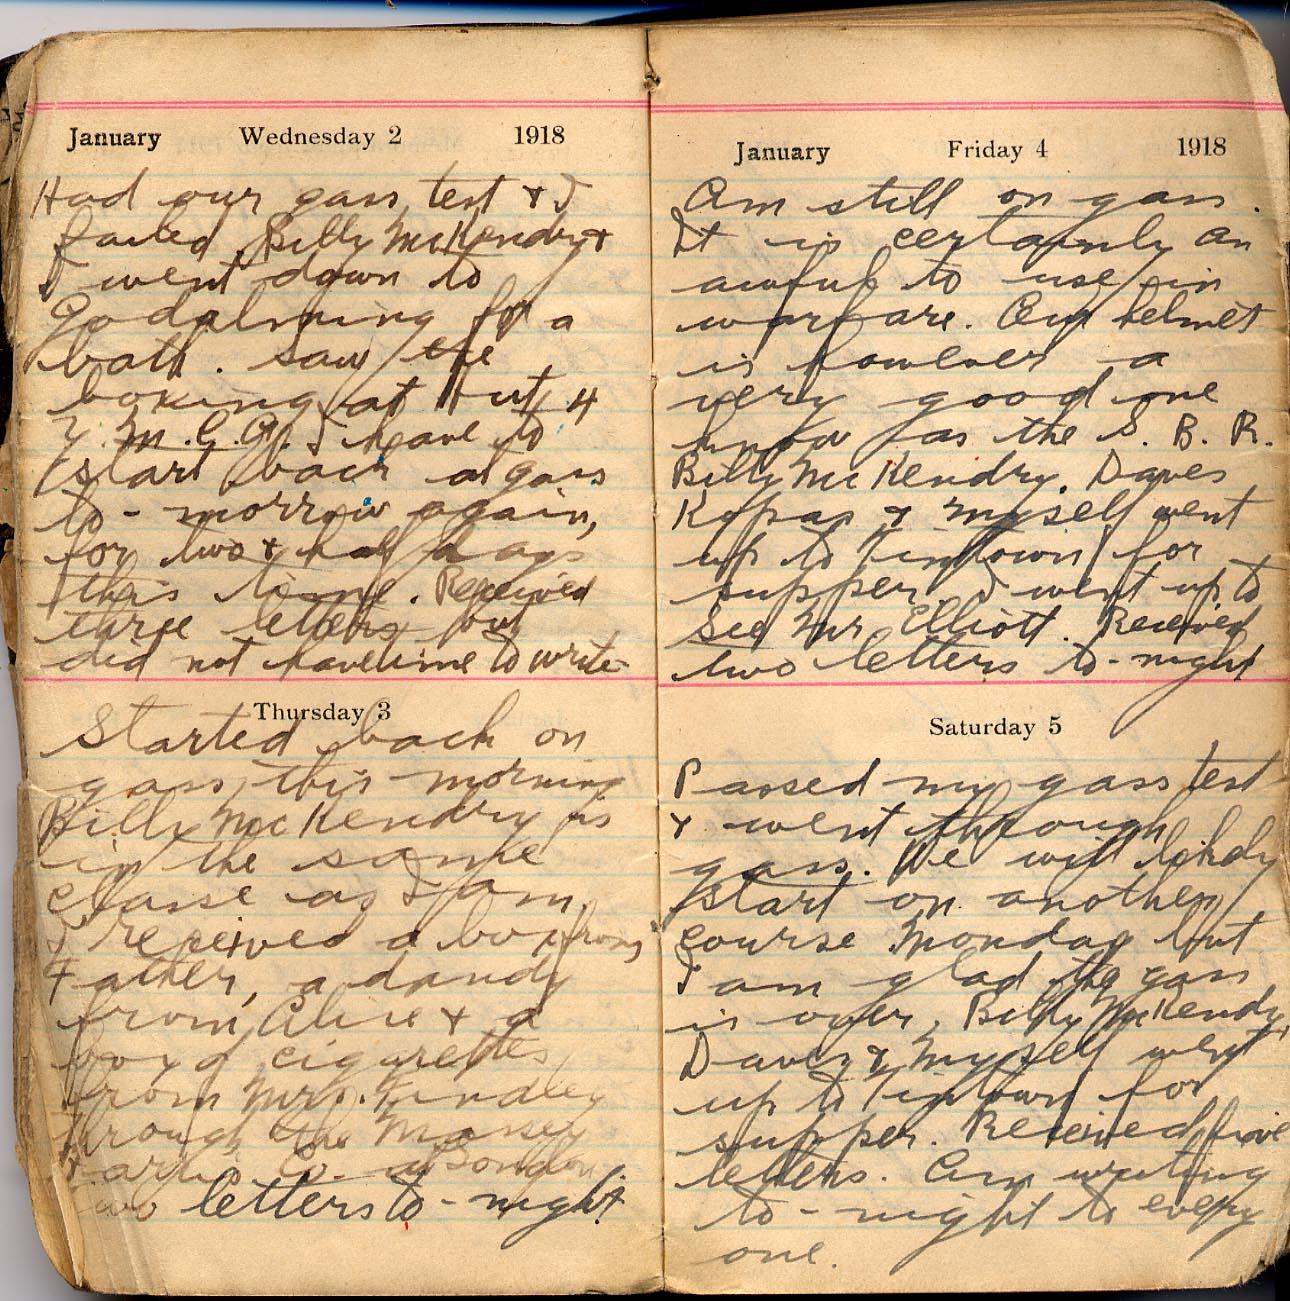 January Wednesday 2 1918
Had our gass test & I
failed Billy McKendry &
I went down to
Godalming for a
bath. saw the
boxing at Hut 4
Y.M.C.A. I have to
start back at gass
to-morrow again,
for two & half days
this time. Received
three letters but
did not have time to write
Thursday 3
Started back on
gass this morning
Billy McKendry is
in the same
classe as I am.
I received a box from
Father, a dandy
from Alice & a
box of cigarettes
from Mrs. Findley
through the Massey
Co. London
two letters to-night
January Friday 4 1918
Am still on gass.
It is certainly an
awful to use in
warfare. Our helmet
is however a
very good one
know as the S. B. R.
Billy McKendry. Daves
& myself went
up to Tintown for
supper. I went up to
See Mr Elliott. Received
two letters to-night
Saturday 5
Passed my gass test
& went through
gass. We will likely
start on another
course Monday but
I am glad the gass
is over. Billy McKendry,
Daves & Myself went
up to Tintown for
supper. Received five
letters. Am writing
to-night to every
one.